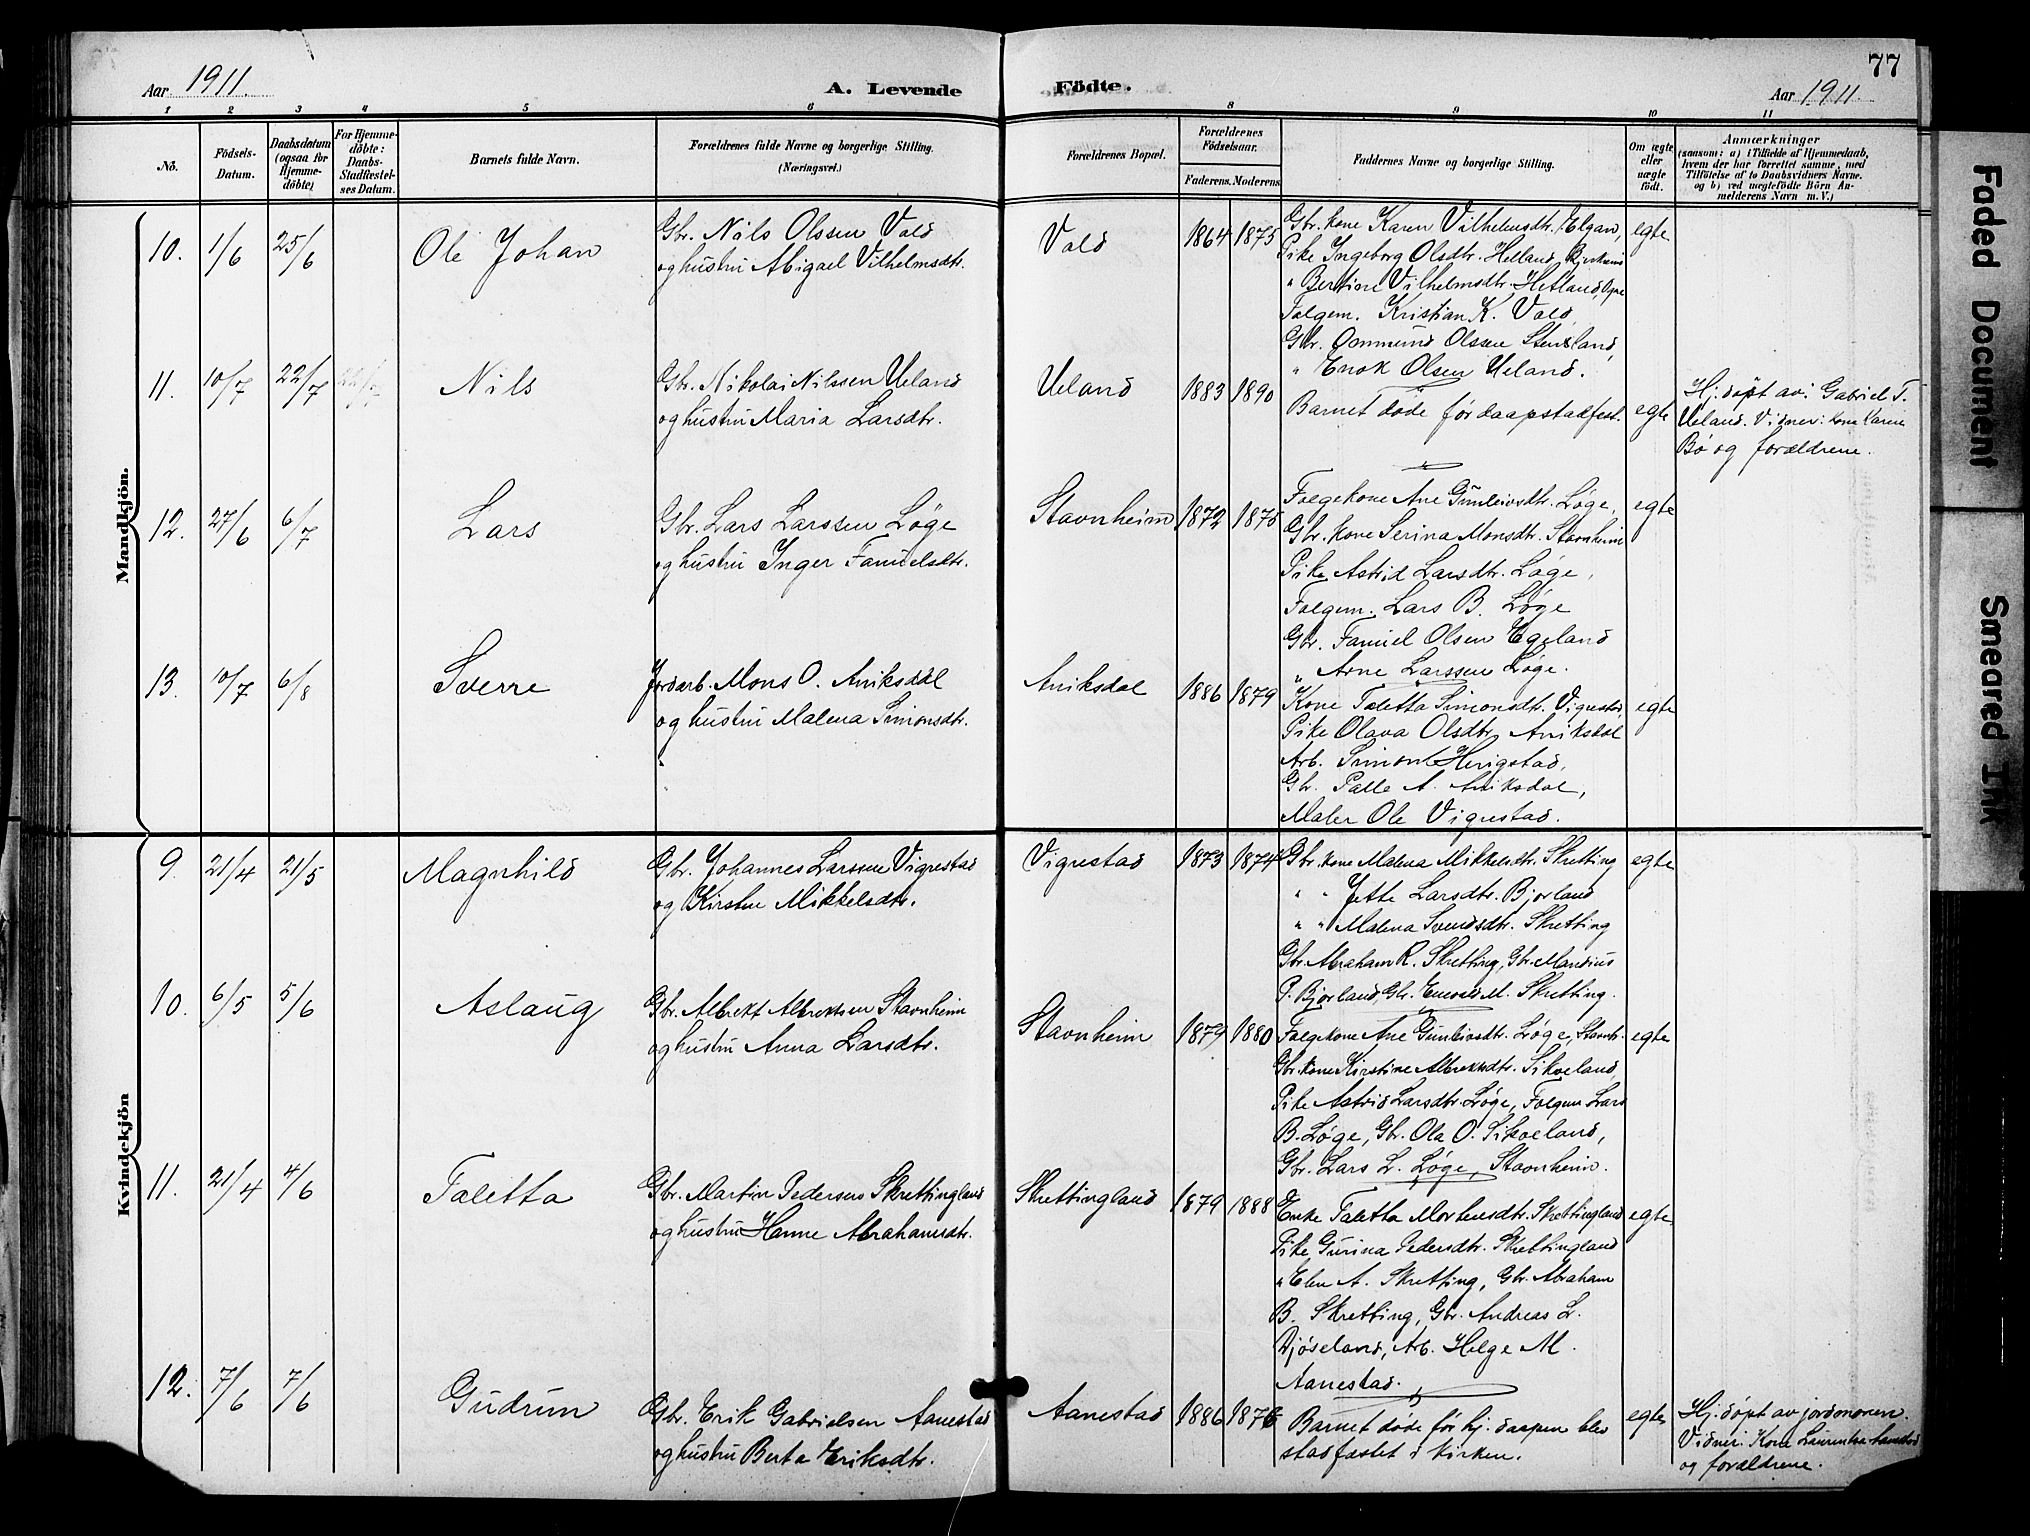 77
Aar 1911.
A. Levende
Födte.
Aar 1911.
1 2 3 4 5 6 8 9 10 11
No.
Födsels-
Datum.
Daabsdatum
(ogsaa for
Hjemme-
döbte)
For Hjemme-
döbte:
Daabs-
Stadfæstel-
ses Datum.
Barnets fulde Navn.
Forældrenes fulde Navne og borgerlige Stilling.
(Næringsvei.)
Forældrenes Bopæl.
Forældrenes
Födselsaar.
Faderens. Moderens.
Faddernes Navne og borgerlige Stilling.
Om ægte
eller
uægte
födt.
Anmærkninger
(saasom: a) i Tilfælde af Hjemmedaab,
hvem der har forrettet samme, med
Tilföielse af to Daabsvidners Navne.
og b) ved uægtefödte Börn An-
melderens Navn m. V.)
Mandkjön.
10. 1/6 25/6 Ole Johan
Gbr. Nils Olssen Vold
og hustru Abigael Vilhelmsdtr.
Vold 1864 1875
Gbr. kone Karen Vilhelmsdtr. Elgan, egte
Pike Ingeborg Olsdtr. Helland, Bjerkreim
" Bertine Vilhelmsdtr. Hetland, Ogne
Folgem. Kristian K. Vold,
Gbr. Ommund Olssen Stensland,
" Enok Olsen Ueland.
11. 10/7 22/7 22/7 Nils
Gbr. Nikolai Nilssen Ueland
og hustru Maria Larsdtr.
Ueland 1883 1890
Barnet døde før daapstadfest. egte
Hj.døpt av: Gabriel T.
Ueland. Vidner: kone Karen
Bø og forældrene.
12. 27/6 6/7 Lars
Gbr. Lars Larssen Løge
og hustru Inger Famuelsdtr.
Stavnheim 1872 1875
Folgekone Ane Gunleivsdtr. Løge, egte
Gbr. kone Serina Monsdtr. Stavnheim
Pike Astrid Larsdtr. Løge,
Folgem. Lars B. Løge
Gbr. Famuel Olsen Egeland
" Arne Larssen Løge.
13. 10/7 6/8 Sverre
Jordarb. Mons O. Aniksdal
og hustru Malena Simonsdtr.
Aniksdal 1886 1879
Kone Taletta Simonsdtr. Vigrestad, egte
Pike Olava Olsdtr. Aniksdal
Arb. Simon Herigstad,
Gbr. Palle A. Aniksdal,
Maler Ole Vigrestad.
Kvindekjön
9. 21/4 21/5 Magnhild
Gbr. Johannes Larssen Vigrestad
og Kirstine Mikkelsdtr.
Vigrestad 1873 1874
Gbr. kone Malena Mikkelsdtr. Skretting egte
" " Jette Larsdtr. Bjorland
" " Malena Svendsdtr. Skretting
Gbr. Abraham R. Skretting, Gbr. Mandius
P. Bjorland, Gbr. Enevald M. Skretting.
10. 6/5 5/6 Aslaug
Gbr. Albrekt Albrektsen Stavnheim
og hustru Anna Larsdtr.
Stavnheim 1879 1880
Folgekone Ane Gunleivsdtr. Løge, Stavnh. egte
Gbr. kone Kirstine Albrektsdtr. Sikveland,
Pike Astrid Larsdtr. Løge, Folgem Lars
B. Løge, Gbr. Ola O. Sikveland,
Gbr. Lars L. Løge, Stavnheim.
11. 21/4 4/6 Taletta
Gbr. Martin Pedersen Skrettingland
og hustru Hanne Abrahamsdtr.
Skrettingland 1879 1888
Enke Taletta Mortensdtr. Skrettingland egte
Pike Gurina Pedersdtr. Skrettingland
" Elen A. Skretting, Gbr. Abraham
B. Skretting, Gbr. Andreas L.
Djøseland, Arb. Helge M.
Aanestad.
12. 7/6 7/6 Gudrun
Gbr. Erik Gabrielsen Aanestad
og hustru Berta Eriksdtr.
Aanestad 1886 1876
Barnet døde før hj. daapen blev egte
stadfæstet i kirken.
Hj.døpt av jordmoren.
Vidner: Kone Laurentse Aanestad
og forældrene.
Faded Document
Smeared Ink